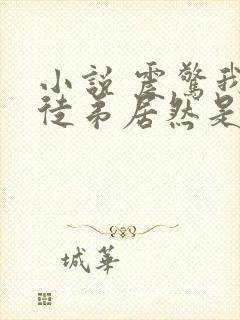 小説 震驚我
徒弟居然是
城華